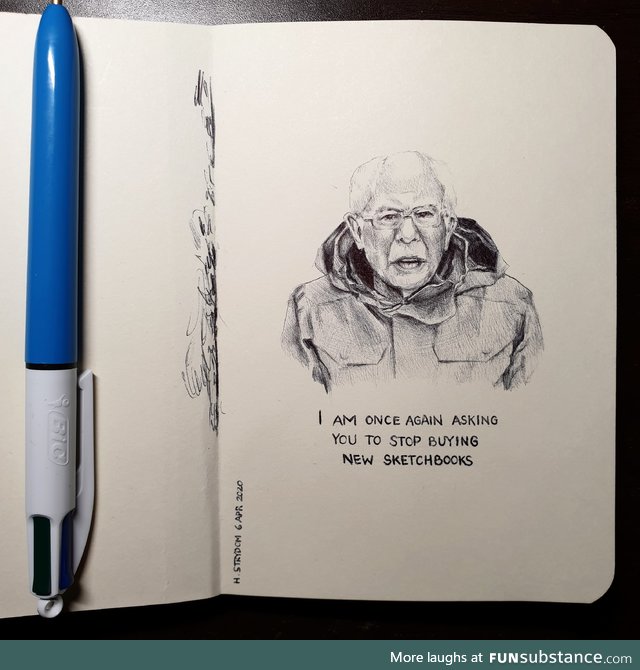 I AM ONCE AGAIN ASKING
YOU TO STOP BUYING
NEW SKETCHBOOKS
H. STRYDOM 6 APR 2020
BIC
More laughs at FUNsubstance.com